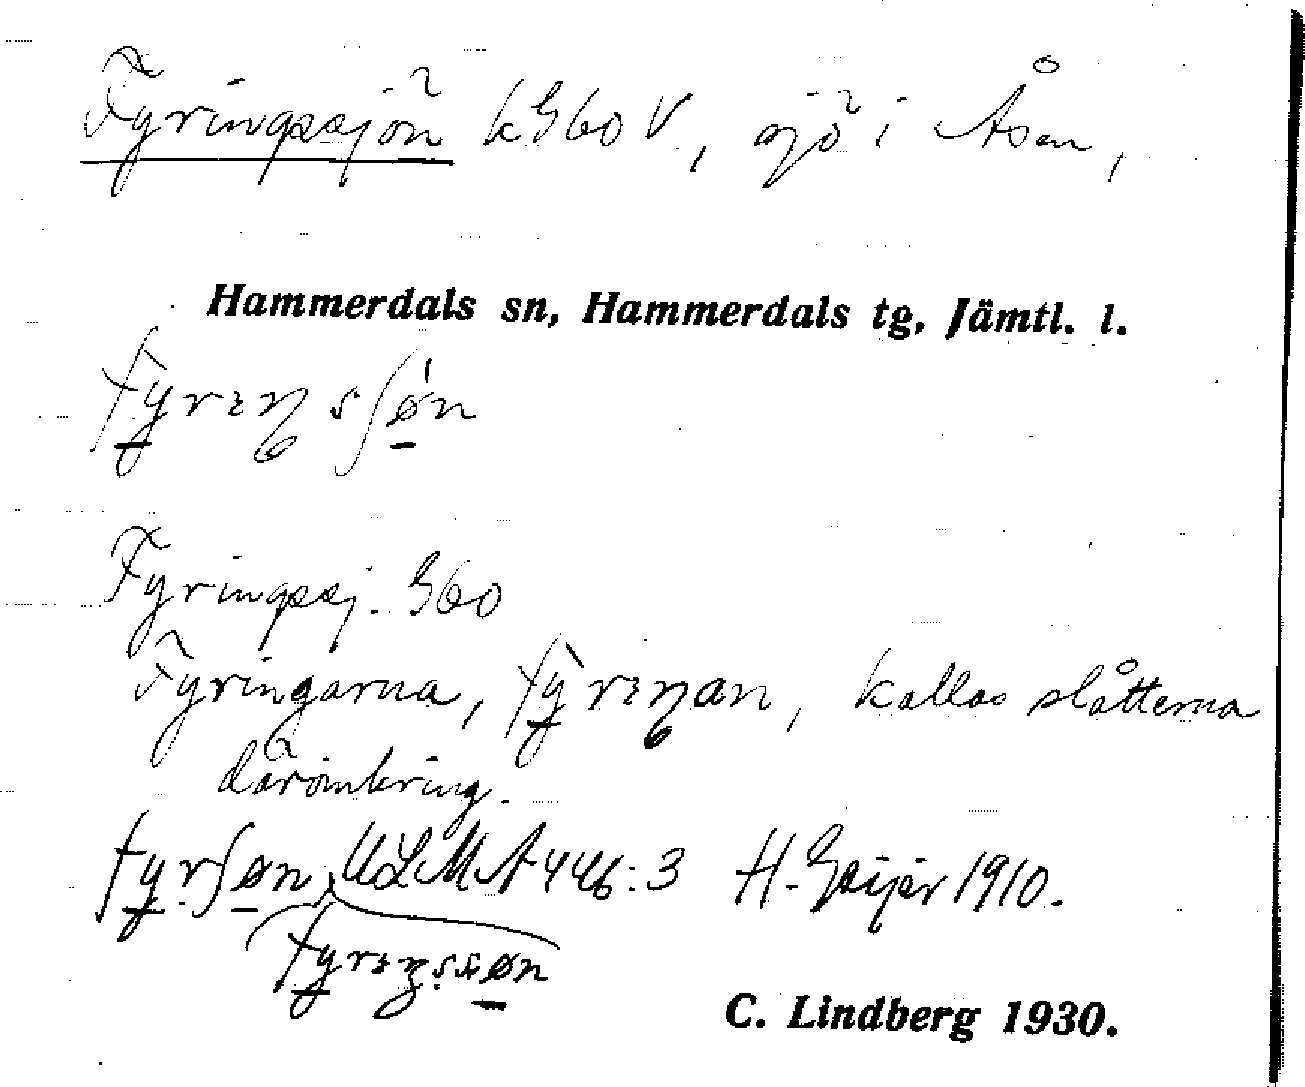 Fyringssjön k G60 V, sjö i Åsen,
Hammerdals sn, Hammerdals tg, Jämtl. l.
fyrɪŋsʃøn
Fyringssj. G60
Fyringarna, fyrɪŋan, kallas slåtterna
däromkring.
fyrʃøn, ULMA 446:3 H. Geijer 1910.
fyrɪŋssøn
C. Lindberg 1930.